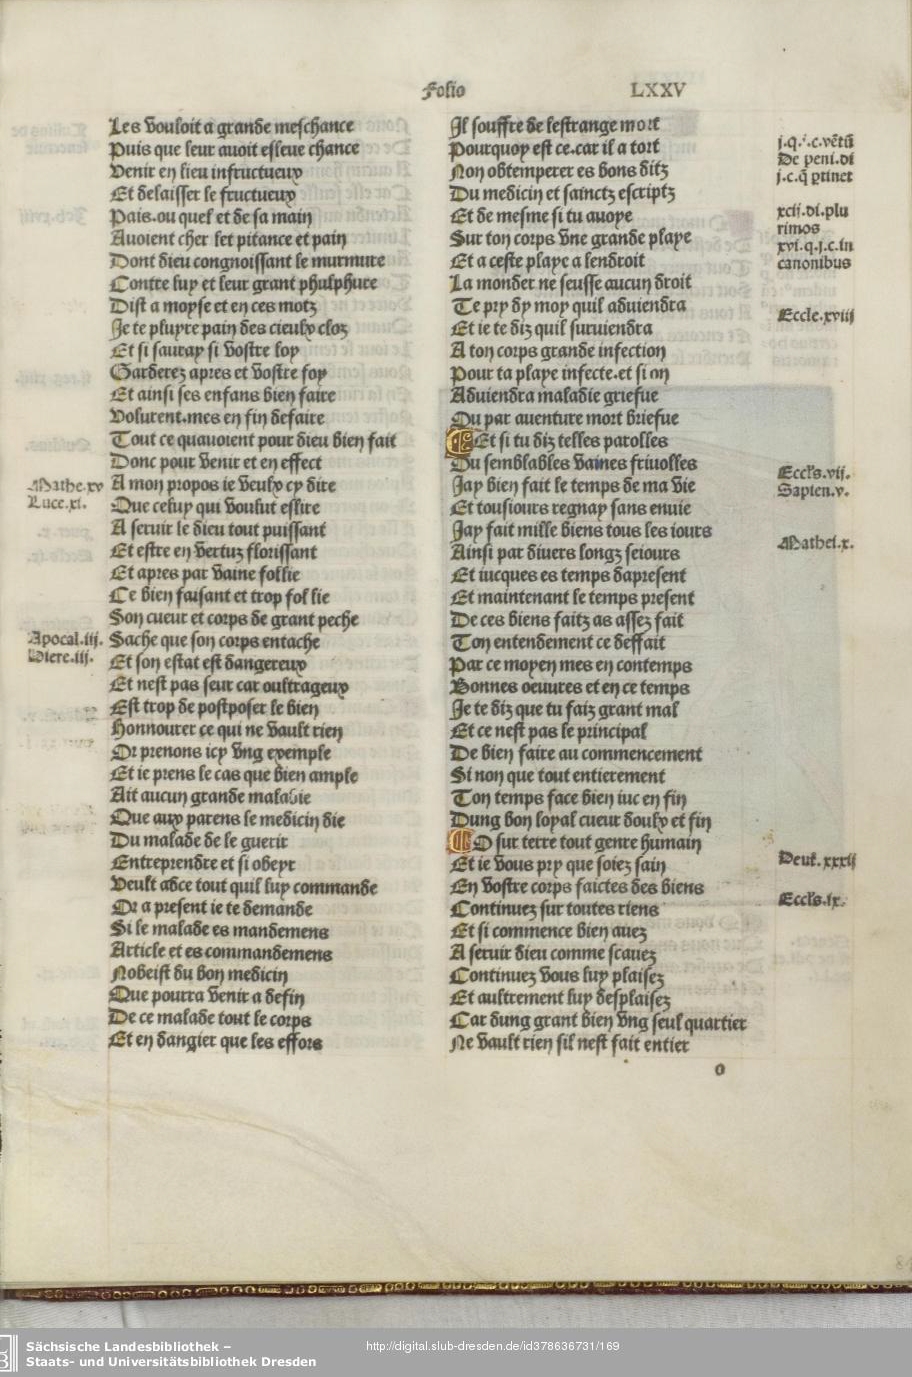 Folio LXXV
Les vouloit a grande meschance
Puis que leur auoit esleue chance
Venir en lieu infructueux
Et delaisser le fructueux
Pais.ou quel et de sa main
Auoient cher fet pitance et pain
Dont dieu congnoissant le murmure
Contre luy et leur grant phulphure
Dist a moyse et en ces motz
Je te pluyre pain des cieulx cloz
Et si sauray si vostre loy
Garderez apres et vostre foy
Et ainsi ses enfans bien faire
Volurent.mes en fin defaire
Tout ce quauoient pour dieu bien fait
Donc pour venir et en effect
A mon propos ie veulx cy dire
Que celuy qui voulut eslire
A seruir le dieu tout puissant
Et estre en vertuz florissant
Et apres par vaine follie
Ce bien faisant et trop follie
Son cueur et corps de grant peche
Sache que son corps entache
Et son estat est dangereux
Et nest pas seur car oultrageux
Est trop de postposer le bien
Honnourer ce qui ne vault rien
Or prenons icy vng exemple
Et ie prens le cas que bien ample
Ait aucun grande maladie
Que aux parens le medicin die
Du malade de le guerir
Entreprendre et si obeyr
Veult adce tout quil luy commande
Or a present ie te demande
Si le malade es mandemens
Article et es commandemens
Nobeist du bon medicin
Que pourra venir a defin
De ce malade tout le corps
Et en dangier que les effors
Mathe.xv
Luce.xi.
Apocal.iii.
Hiere.iii.
Il souffre de lestrange mort
Pourquoy est ce.car il a tort
Non obtemperer es bons ditz
Du medicin et sainctz escriptz
Et de mesme si tu auoye
Sur ton corps vne grande playe
Et a ceste playe a lendroit
La monder ne seusse aucun droit
Te pry dy moy quil aduiendra
Et ie te diz quil suruiendra
A ton corps grande infection
Pour ta playe infecte.et si on
Aduiendra maladie griefue
Ou par auenture mort briefue
Et si tu diz telles parolles
Ou semblables vaines friuolles
Jay bien fait le temps de ma vie
Et tousiours regnay sans enuie
Jay fait mille biens tous les iours
Ainsi par diuers longz seiours
Et iucques es temps dapresent
Et maintenant le temps present
De ces biens faitz as assez fait
Ton entendement ce deffait
Par ce moyen mes en contemps
Bonnes oeuures et en ce temps
Je te diz que tu faiz grant mal
Et ce nest pas le principal
De bien faire au commencement
Si non que tout entierement
Ton temps face bien iuc en fin
Dung bon loyal cueur doulx et fin
O sur terre tout genre humain
Et ie vous pry que soiez sain
En vostre corps faictes des biens
Continuez sur toutes riens
Et si commence bien auez
A seruir dieu comme scauez
Continuez vous luy plaisez
Et aultrement luy desplaisez
Car dung grant bien vng seul quartier
Ne vault rien sil nest fait entier
o
De peni.di
xcii.di.plu
rimos
xvi.q.i.c.in
canonibus
Eccle.xviii
Eccls.vii.
Sapien.v.
Mathei.x.
Deut.xxxii
Eccls.ix.
Sächsische Landesbibliothek –
Staats- und Universitätsbibliothek Dresden
http://digital.slub-dresden.de/id378636731/169